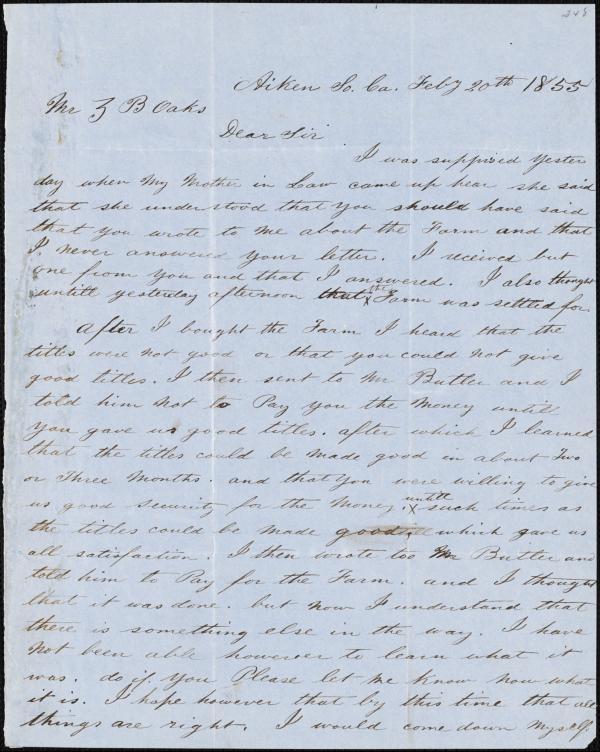 248
Aiken So. Ca. Feby 20th 1855
Mr Z B Oaks
Dear Sir
I was supprised yester
day when My Mother in Law came up hear she said
that she understood that you should have said
that you wrote to me about the Farm and that
I never answered your letter. I received but
one from you and that I answered. I also thought
untill yesterday afternoon that the Farm was settled for.
After I bought the Farm I heard that the
titles were not good or that you could not give
good titles. I then sent to Mr Butler and I
told him not to Pay you the Money untill
you gave us good titles. after which I learned
that the titles could be made good in about Two
or Three Months. and that you were willing to give
us good security for the Money. untill such times as
the titles could be made good, which gave us
all satisfaction. I then wrote too Mr Butler and
told him to Pay for the Farm. and I thought
that it was done. but now I understand that
there is something else in the way. I have
Not been able however to learn what it
was. do if you Please let me know now what
it is. I hope however that by this time that all
things are right. I would come down Myself